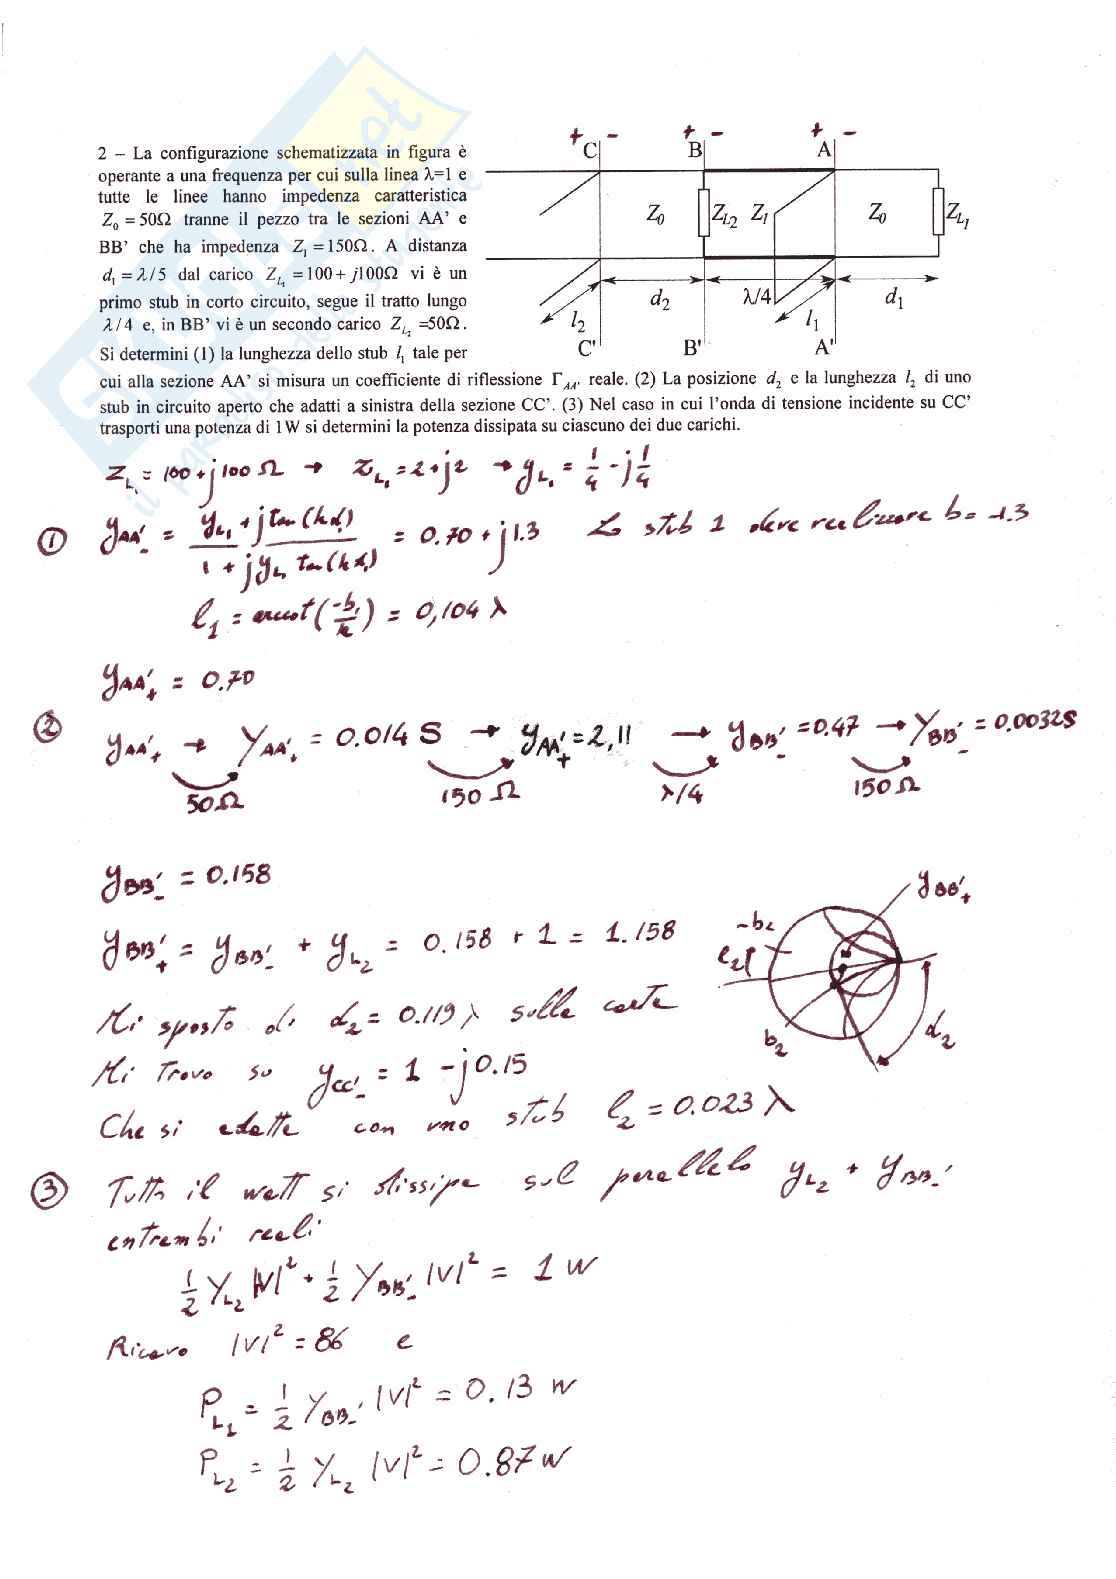 2 – La configurazione schematizzata in figura è
operante a una frequenza per cui sulla linea λ=1 e
tutte le linee hanno impedenza caratteristica
Z₀ = 50Ω tranne il pezzo tra le sezioni AA’ e
BB’ che ha impedenza Z₁ = 150Ω. A distanza
d₁ = λ/5 dal carico Z_L₁ = 100 + j100Ω vi è un
primo stub in corto circuito, segue il tratto lungo
λ/4 e, in BB’ vi è un secondo carico Z_L₂ =50Ω.
Si determini (1) la lunghezza dello stub l₁ tale per
cui alla sezione AA’ si misura un coefficiente di riflessione Γ_AA' reale. (2) La posizione d₂ e la lunghezza l₂ di uno
stub in circuito aperto che adatti a sinistra della sezione CC’. (3) Nel caso in cui l’onda di tensione incidente su CC’
trasporti una potenza di 1W si determini la potenza dissipata su ciascuno dei due carichi.
+ - + - + -
C B A
Z₀ Z_L₂ Z₁ Z₀ Z_L₁
l₂ d₂ λ/4 l₁ d₁
C' B' A'
Z_L₁ = 100 + j100 Ω → Z_L₁ = 2+j2 → y_L₁ = 1/4 - j 1/4
① y_AA'₋ = (y_L₁ + j tan(kd₁)) / (1 + j y_L₁ tan(kd₁)) = 0.70 + j1.3 Lo stub 1 deve realizzare b = -1.3
l₁ = arccot(-b₁/k) = 0,104 λ
y_AA'₊ = 0.70
② y_AA'₊ → Y_AA'₊ = 0.014 S → y_AA'₊ = 2,11 → y_BB'₋ = 0.47 → Y_BB'₋ = 0.0032S
50Ω 150 Ω λ/4 150 Ω
y_BB'₋ = 0.158
y_BB'₊ = y_BB'₋ + y_L₂ = 0.158 + 1 = 1.158
y_BB'₊
-b₂
l₂
b₂
d₂
Mi sposto di d₂ = 0.119 λ sulla carta
Mi trovo su y_CC'₋ = 1 - j0.15
Che si adatta con uno stub l₂ = 0.023 λ
③ Tutto il watt si dissipa sul parallelo y_L₂ + y_BB'₋
entrambi reali
1/2 Y_L₂ |V|² + 1/2 Y_BB'₋ |V|² = 1 W
Ricavo |V|² = 86 e
P_L₁ = 1/2 Y_BB'₋ |V|² = 0.13 W
P_L₂ = 1/2 Y_L₂ |V|² = 0.87 W